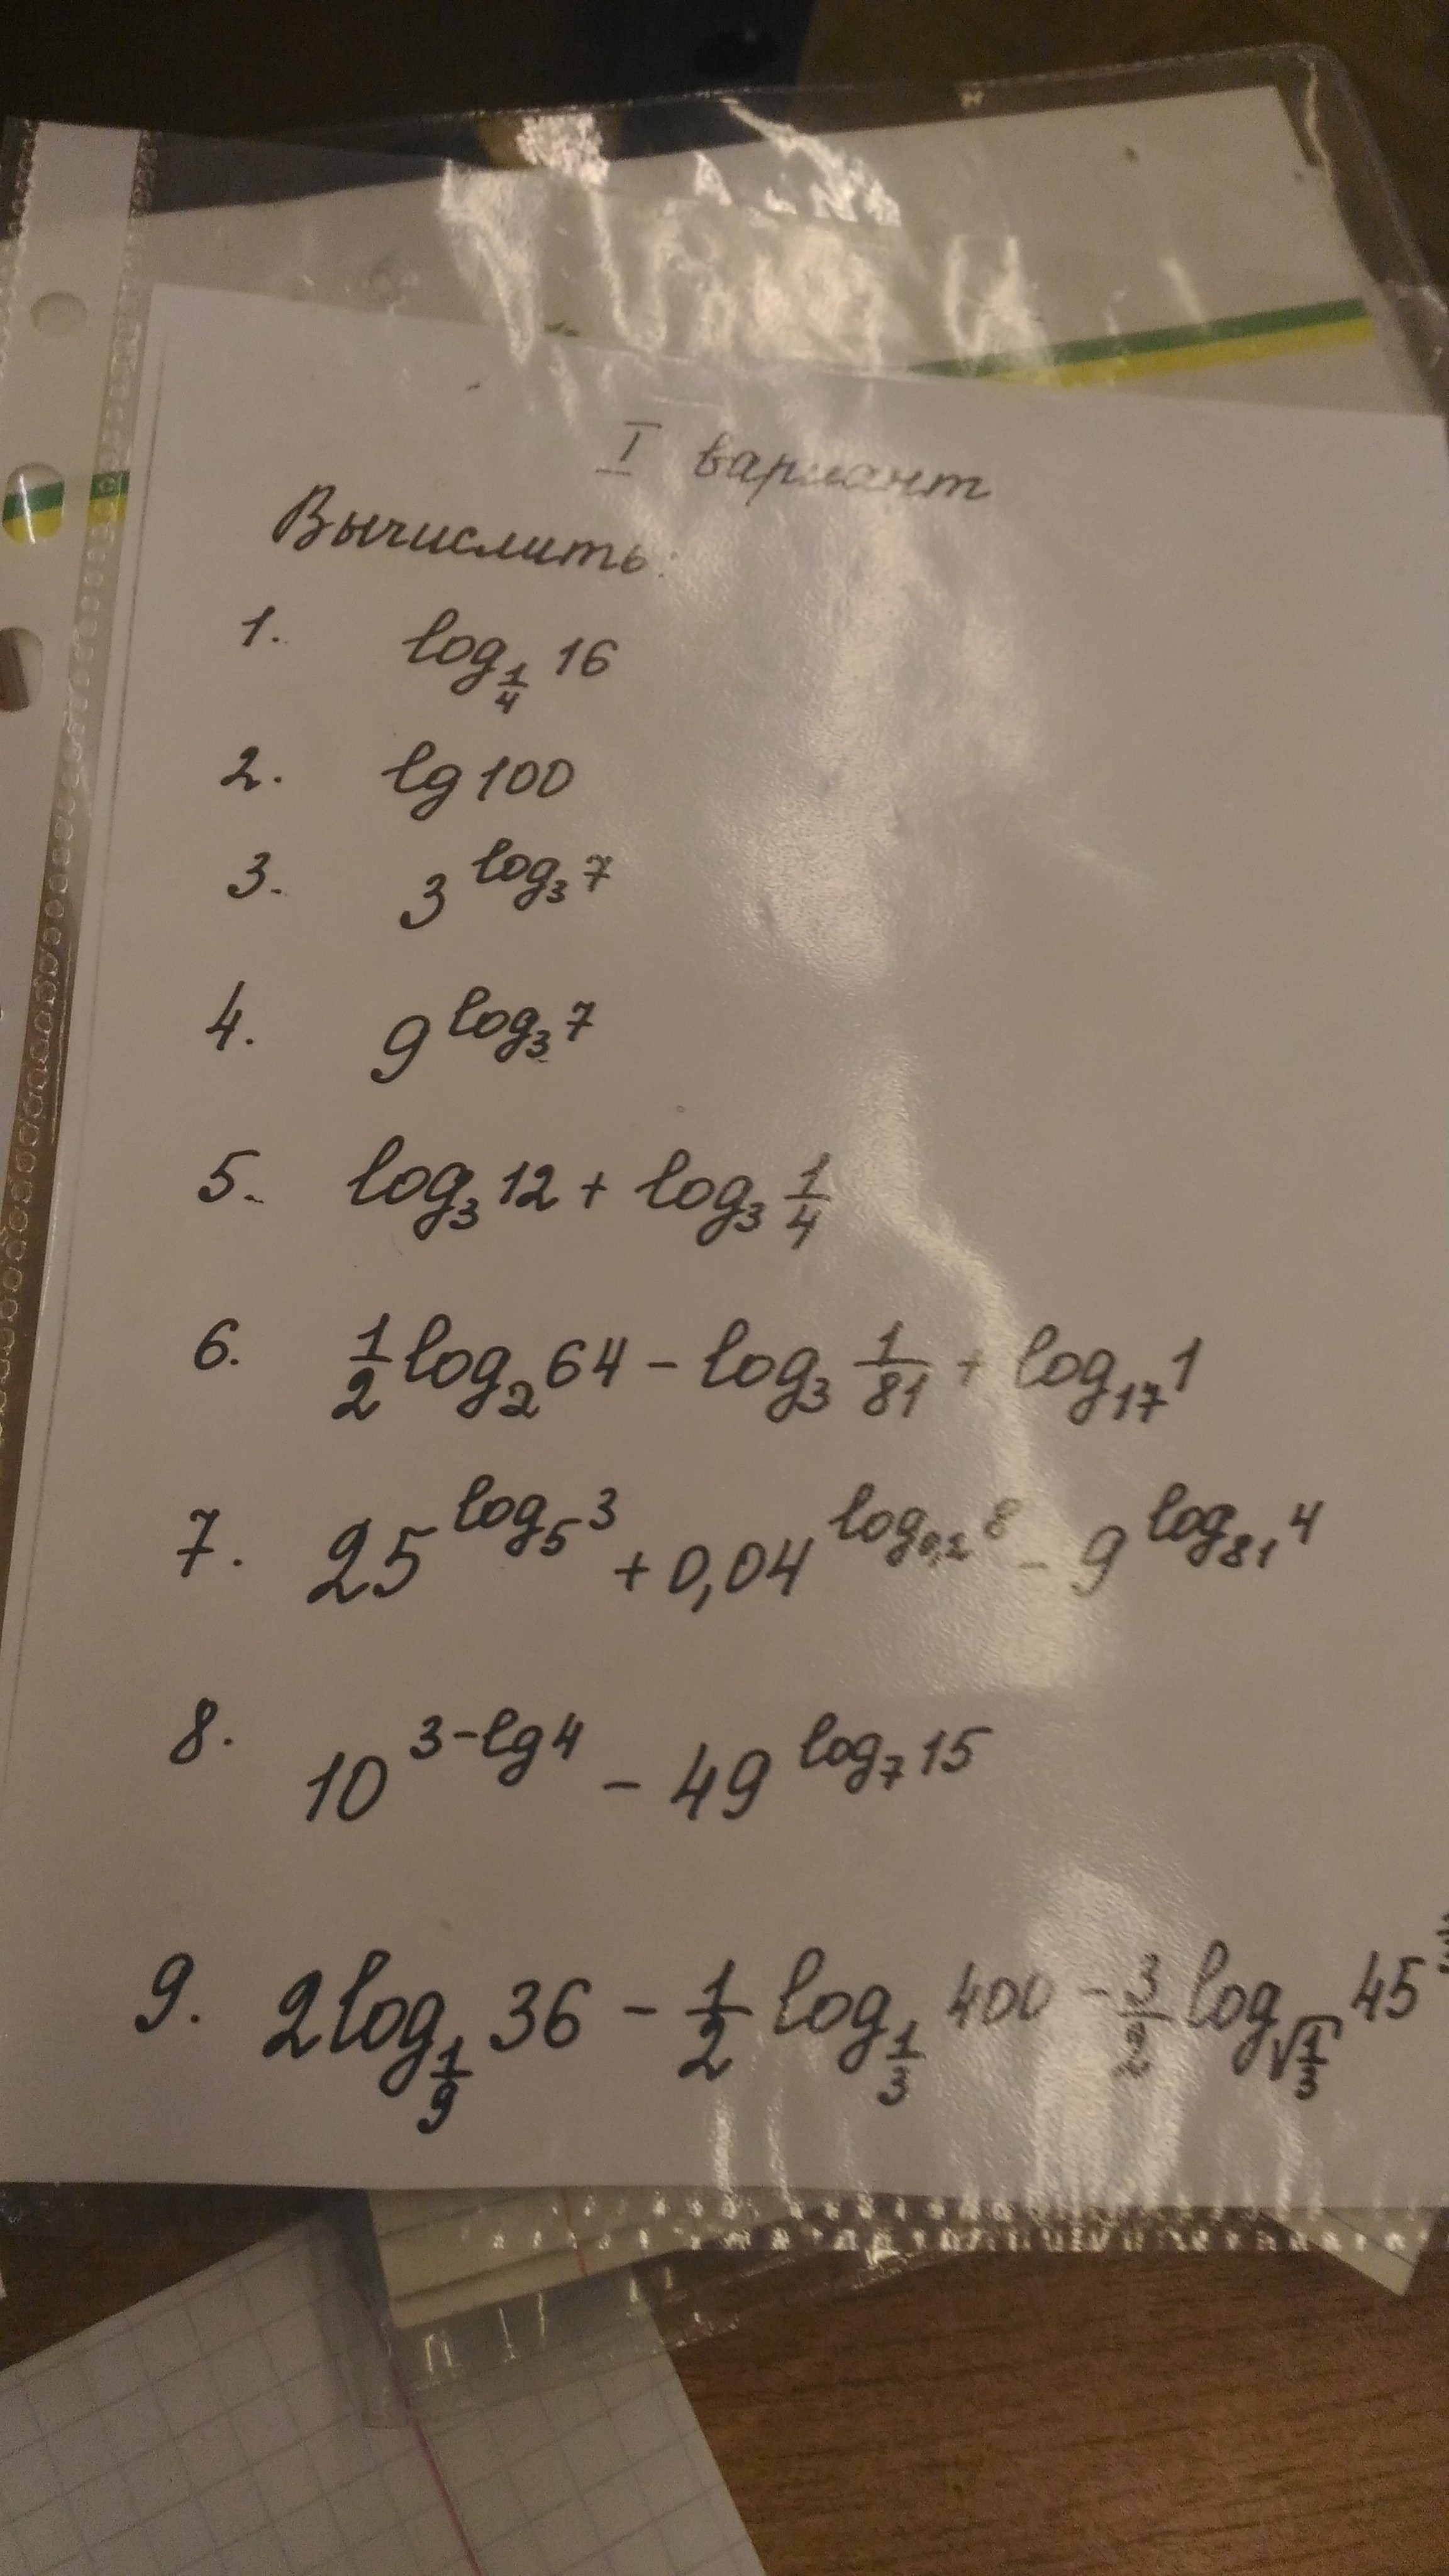 I вариант
Вычислить:
1. log_{1/4} 16
2. lg 100
3. 3^{log_3 7}
4. 9^{log_3 7}
5. log_3 12 + log_3 1/4
6. 1/2 log_2 64 - log_3 1/81 + log_{17} 1
7. 25^{log_5 3} + 0,04^{log_{0,2} 8} - 9^{log_{81} 4}
8. 10^{3-lg 4} - 49^{log_7 15}
9. 2log_{1/9} 36 - 1/2 log_{1/3} 400 - 3/2 log_{√(1/3)} 45